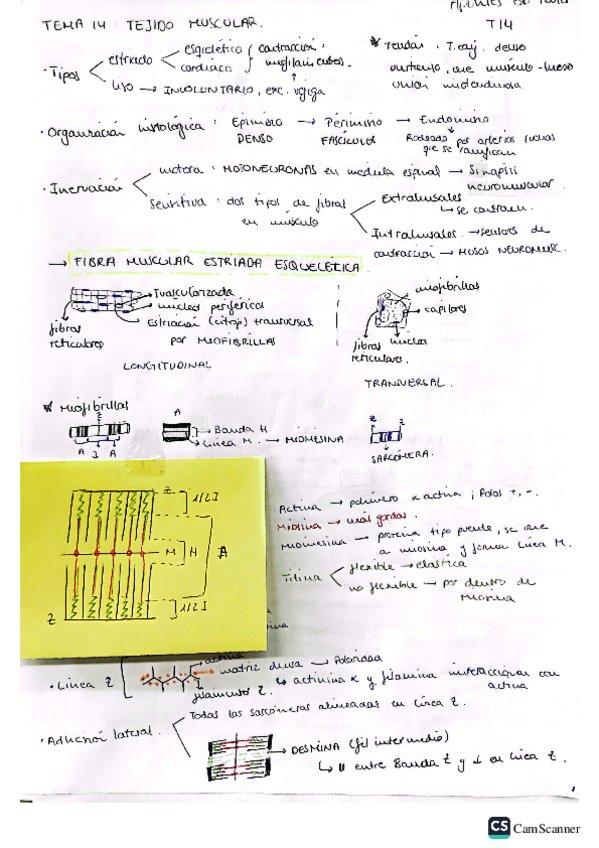 TEMA 14: TEJIDO MUSCULAR.
T14
· Tipos
estriado
esquelético
cardiaco
contracción,
miofilamentos.
liso → INVOLUNTARIO, exc. vejiga
* Tendón: T. conj. denso
unión miotendinosa
· Organización histológica: Epimisio → Perimisio → Endomisio
DENSO
FASCÍCULOS
Rodeado por arterias
que se ramifican
· Inervación
motora: MOTONEURONAS en médula espinal → Sinapsis
neuromuscular.
Sensitiva: dos tipos de fibras
en músculo
Extrafusales
↳ se contraen.
Intrafusales → sensores de
contracción → HUSOS NEUROMUSC.
→ FIBRA MUSCULAR ESTRIADA ESQUELÉTICA.
→ núcleos periféricos
→ Estriación (citop) transversal
por MIOFIBRILLAS
fibras
reticulares
LONGITUDINAL
miofibrillas
→ capilares
fibras
reticulares.
núcleos
TRANVERSAL.
* Miofibrillas
Z
A I A
A
→ Banda H
→ Línea M. → MIOMESINA
Z Z
SARCÓMERA.
Z
1/2 I
M
H
A
1/2 I
Z
Actina → polímero α actina; Polos +, -.
Miosina → más gordos.
Miomesina → proteína tipo puente, se une
a miosina y forma línea M.
Titina
flexible → elástica
no flexible → por dentro de
miosina
· Línea Z
actina
matriz densa → Polaridad
↳ actinina α y filamina interaccionan con
actina
filamentos Z.
· Adhesión lateral.
Todas las sarcómeras alineadas en línea Z.
→ DESMINA (fil intermedio)
↳ || entre Banda Z y ⊥ en línea Z.
CS CamScanner